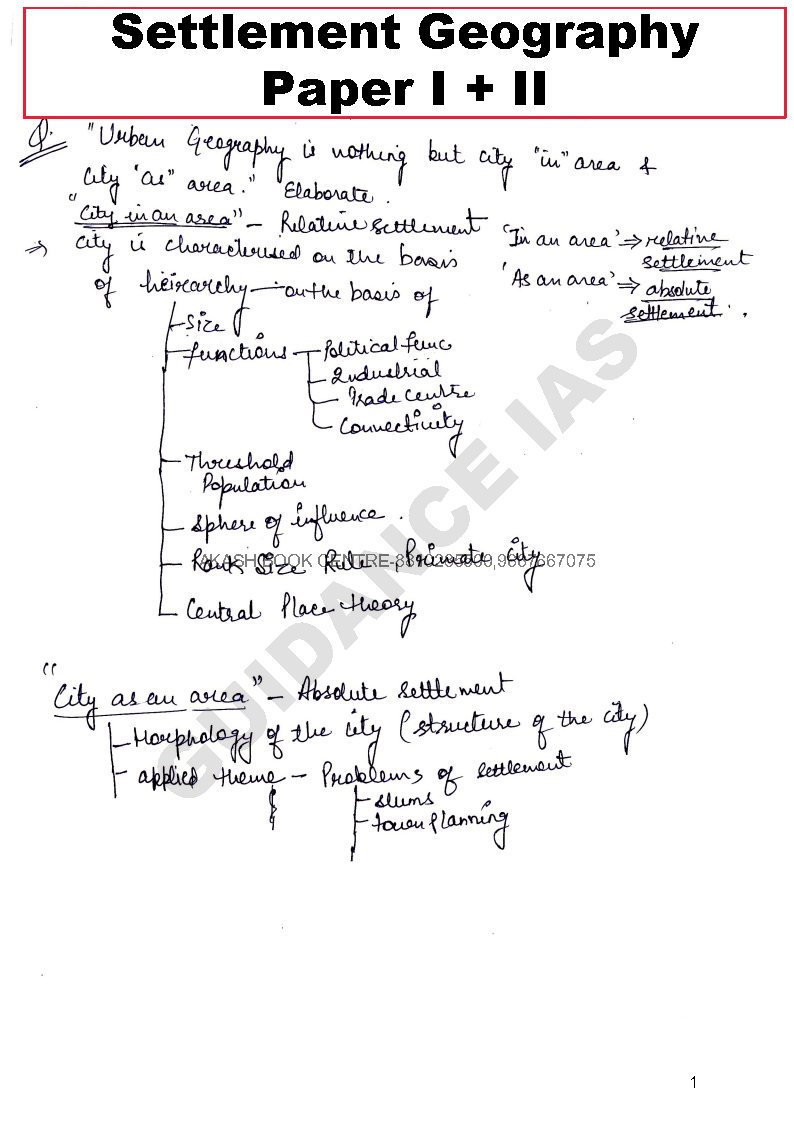 Settlement Geography
Paper I + II
Q. "Urban Geography is nothing but city "in" area &
City "as" area." Elaborate.
"City in an area" – Relative settlement
'In an area' ⇒ relative
settlement
⇒ City is characterised on the basis
of heirarchy — on the basis of
'As an area' ⇒ absolute
settlement.
Size
functions – Political func
Industrial
Trade Centre
Connectivity
Threshold
Population
Sphere of influence.
Rank Size Rule, Primate city
AKASH BOOK CENTRE-
Central Place theory
"City as an area" – Absolute settlement
Morphology of the city (structure of the city)
applied theme – Problems of settlement
slums
town planning
GUIDANCE IAS
1